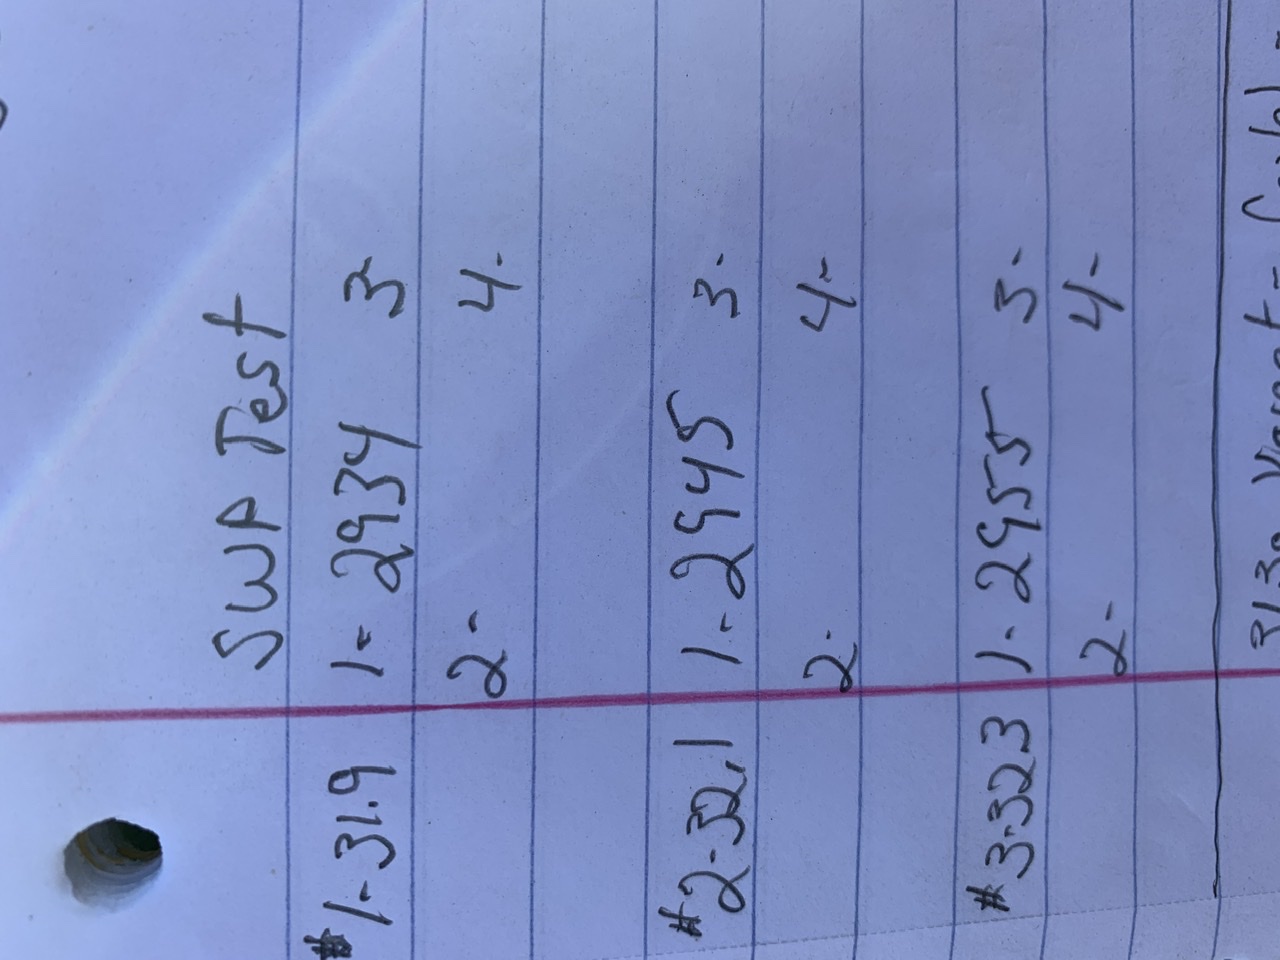 SWP Test
#1-31.9 1- 2934 3
2- 4-
#2-32.1 1- 2945 3-
2- 4-
#3-323 1- 2955 3-
2- 4-